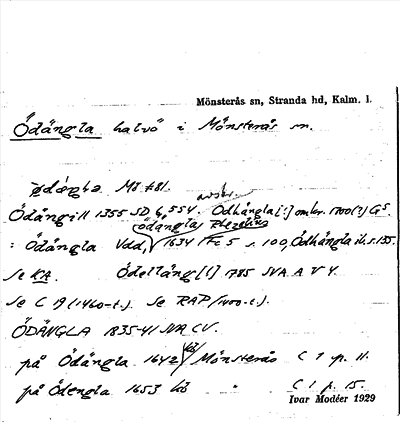 Mönsterås sn, Stranda hd, Kalm. l.
Ödängla halvö i Mönsterås sn.
Mö 781.
avskr.
Ödängill 1355 SD 6, 554. Ödhängla[:] omkr. 1700(?) GS
Ödängla
: Ödängla Vdd, 1634 s. 100, Ödhängla ib. s. 135.
Se KA. Ödelläng[l] 1785 SVA A V 4.
Se C 19 (1460-t.). Se RAP (1400-t.).
ÖDÄNGLA 1835-41 SVA CV.
kb
på Ödängla 1642 Mönsterås C 1 p. 11.
på Ödengla 1653 kb " C 1 p. 15.
Ivar Modéer 1929